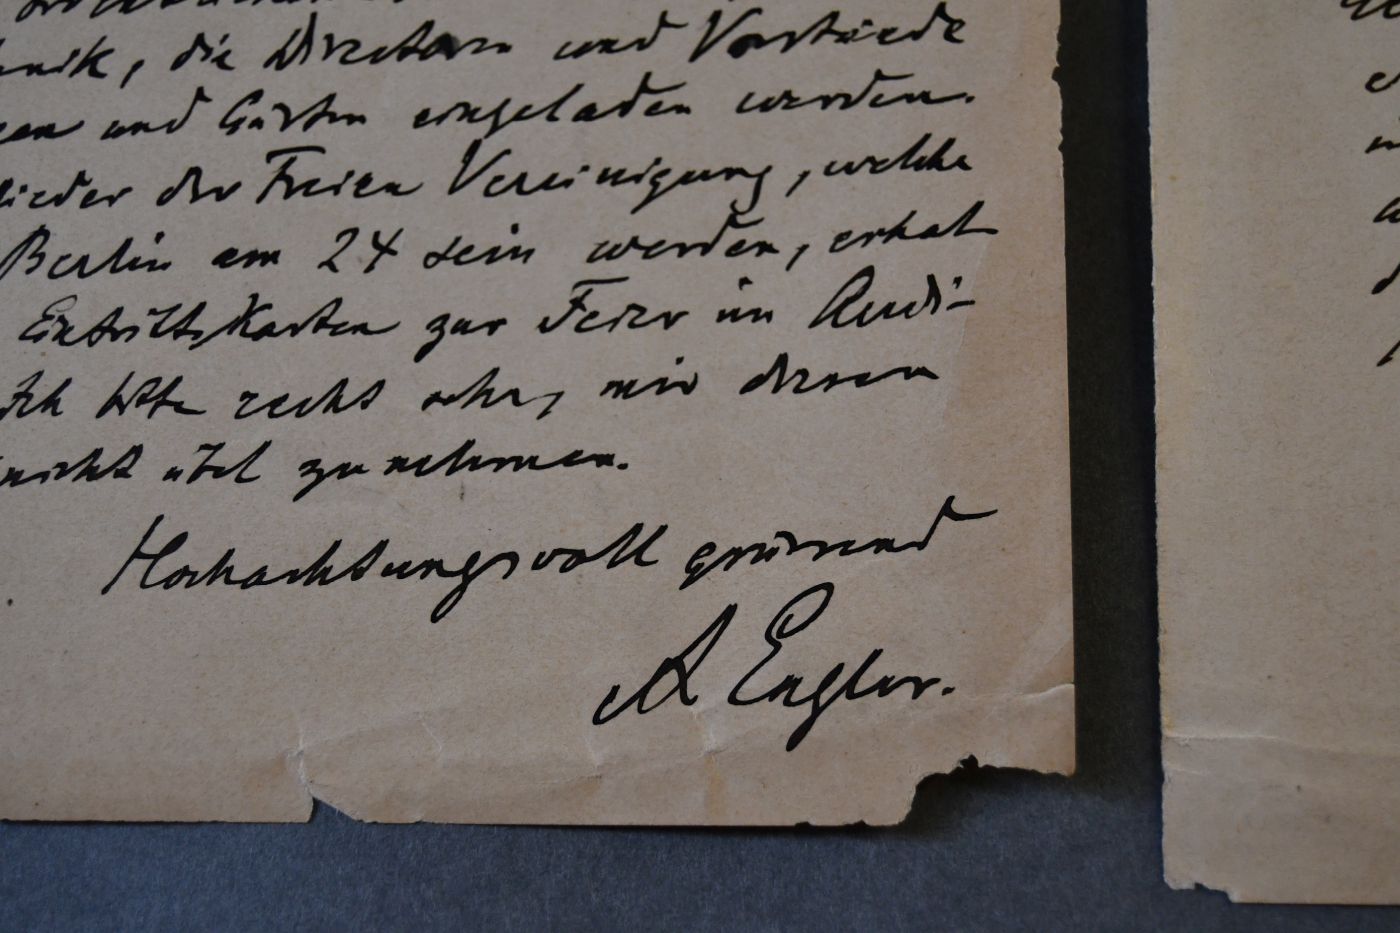 die Directoren und Vorstände
und Gärten eingeladen werden.
der Freien Vereinigung, welche
Berlin am 24 sein werden, erhal
Eintrittskarten zur Feier im Audi-
Ich bitte recht sehr, mir diesen
nicht übel zu nehmen.
Hochachtungsvoll grüssend
A Engler.